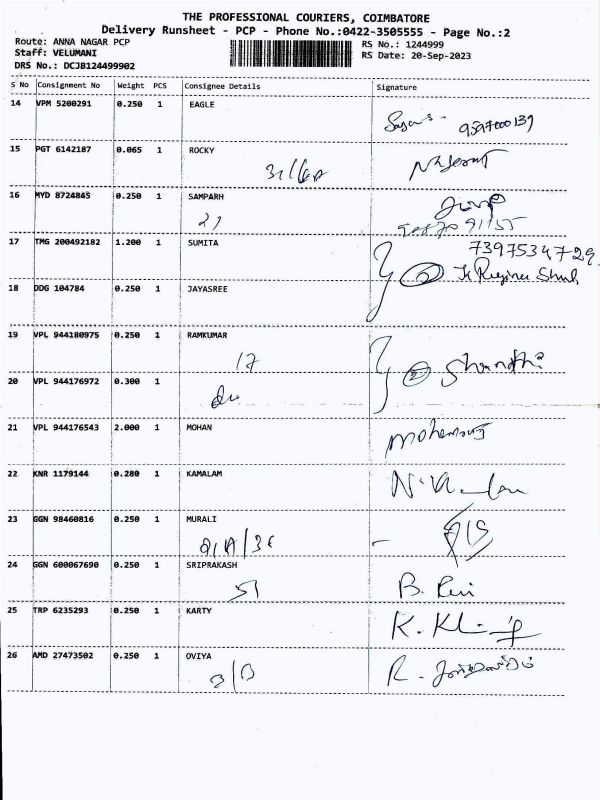 THE PROFESSIONAL COURIERS, COIMBATORE
Delivery Runsheet - PCP - Phone No.:0422-3505555 - Page No.:2
Route: ANNA NAGAR PCP
Staff: VELUMANI
DRS No.: DCJB124499902
RS No.: 1244999
RS Date: 20-Sep-2023
S No Consignment No Weight PCS Consignee Details Signature
14 VPM 5200291 0.250 1 EAGLE
9597000139
15 PGT 6142187 0.065 1 ROCKY
16 MYD 8724845 0.250 1 SAMPARH
21
17 TMG 200492182 1.200 1 SUMITA
7397534729
2
18 DDG 104784 0.250 1 JAYASREE
19 VPL 944180975 0.250 1 RAMKUMAR
17
2 Shanthi
20 VPL 944176972 0.300 1
21 VPL 944176543 2.000 1 MOHAN
22 KNR 1179144 0.280 1 KAMALAM
23 GGN 98460816 0.250 1 MURALI
24 GGN 600067690 0.250 1 SRIPRAKASH
51
25 TRP 6235293 0.250 1 KARTY
26 AMD 27473502 0.250 1 OVIYA